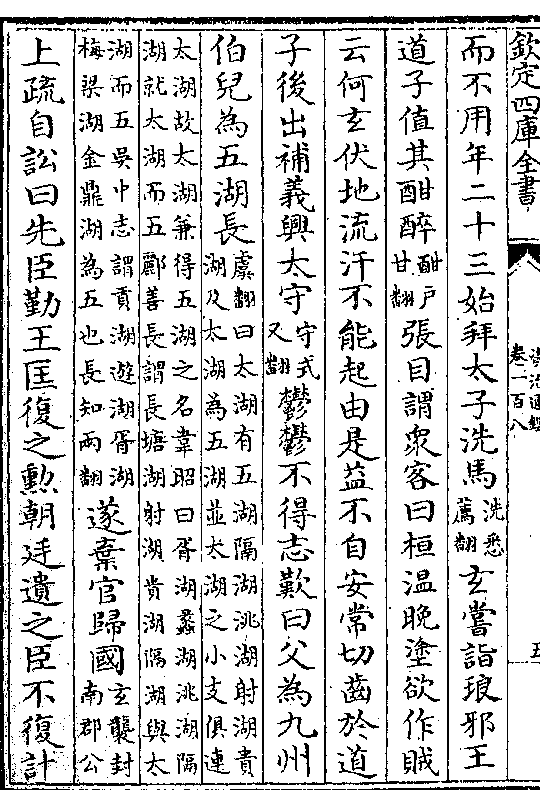 欽定四庫全書
資治通鑑
卷一百八
五
而不用年二十三始拜太子洗馬洗悉薦翻玄嘗詣琅邪王
道子值其酣醉酣戶甘翻張目謂衆客曰桓温晚塗欲作賊
云何玄伏地流汗不能起由是益不自安常切齒於道
子後出補義興太守守式又翻鬱鬱不得志歎曰父為九州
伯兒為五湖長虞翻曰太湖有五湖隔湖洮湖射湖貴湖及太湖為五湖並太湖之小支俱連
太湖故太湖兼得五湖之名韋昭曰胥湖蠡湖洮湖隔湖就太湖而五酈善長謂長塘湖射湖貴湖隔湖與太
湖而五吳中志謂貢湖遊湖胥湖梅梁湖金鼎湖為五也長知兩翻遂棄官歸國玄襲封南郡公
上疏自訟曰先臣勤王匡復之勲朝廷遺之臣不復計